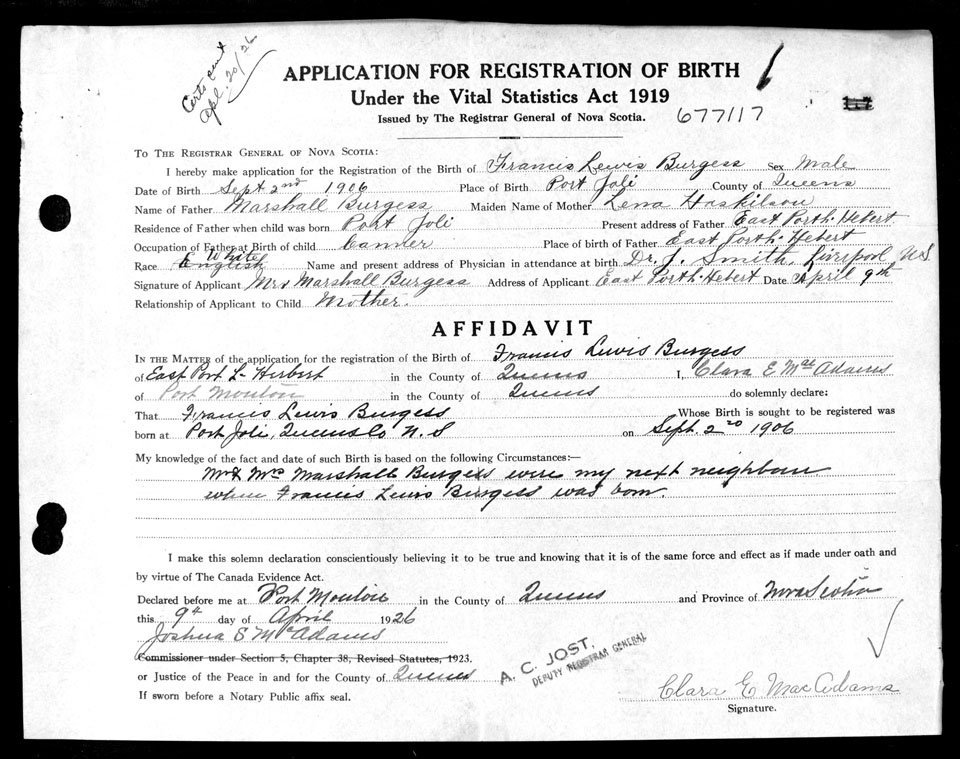 Certs sent
Apl. 20/26
APPLICATION FOR REGISTRATION OF BIRTH
Under the Vital Statistics Act 1919
Issued by The Registrar General of Nova Scotia.
677117
To The Registrar General of Nova Scotia:
I hereby make application for the Registration of the Birth of Francis Lewis Burgess Sex Male
Date of Birth Sept 2nd 1906 Place of Birth Port Joli County of Queens
Name of Father Marshall Burgess Maiden Name of Mother Lena Haskilson
Residence of Father when child was born Port Joli Present address of Father East Porth. Hebert
Occupation of Father at Birth of child Canner Place of birth of Father East Porth. Hebert
White
Race English Name and present address of Physician in attendance at birth Dr. J. Smith, Liverpool, NS
Signature of Applicant Mrs Marshall Burgess Address of Applicant East Porth. Hebert Date April 9th
Relationship of Applicant to Child Mother.
AFFIDAVIT
In the Matter of the application for the registration of the Birth of Francis Lewis Burgess
of East Port L. Herbert in the County of Queens I, Clara E Mac Adams
of Port Mouton in the County of Queens do solemnly declare:
That Francis Lewis Burgess Whose Birth is sought to be registered was
born at Port Joli, Queens Co N.S on Sept. 2nd 1906
My knowledge of the fact and date of such Birth is based on the following Circumstances:—
Mr & Mrs Marshall Burgess were my next neighbour
when Francis Lewis Burgess was born.
I make this solemn declaration conscientiously believing it to be true and knowing that it is of the same force and effect as if made under oath and
by virtue of The Canada Evidence Act.
Declared before me at Port Mouton in the County of Queens and Province of Nova Scotia
this 9th day of April 1926
Joshua S McAdams
Commissioner under Section 5, Chapter 38, Revised Statutes, 1923.
or Justice of the Peace in and for the County of Queens
If sworn before a Notary Public affix seal.
A. C. JOST,
DEPUTY REGISTRAR GENERAL
Clara E MacAdams
Signature.